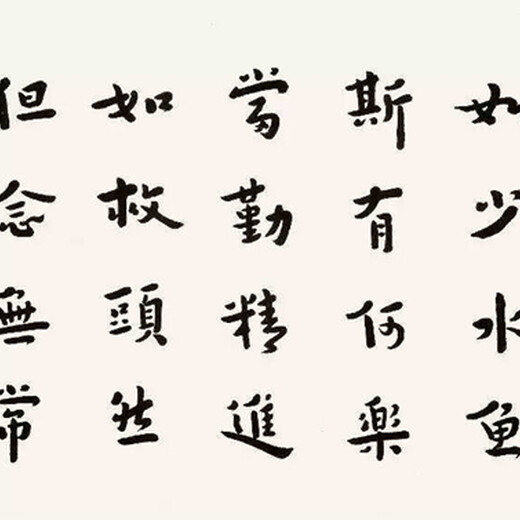 如少水魚
斯有何樂
當勤精進
如救頭然
但念無常